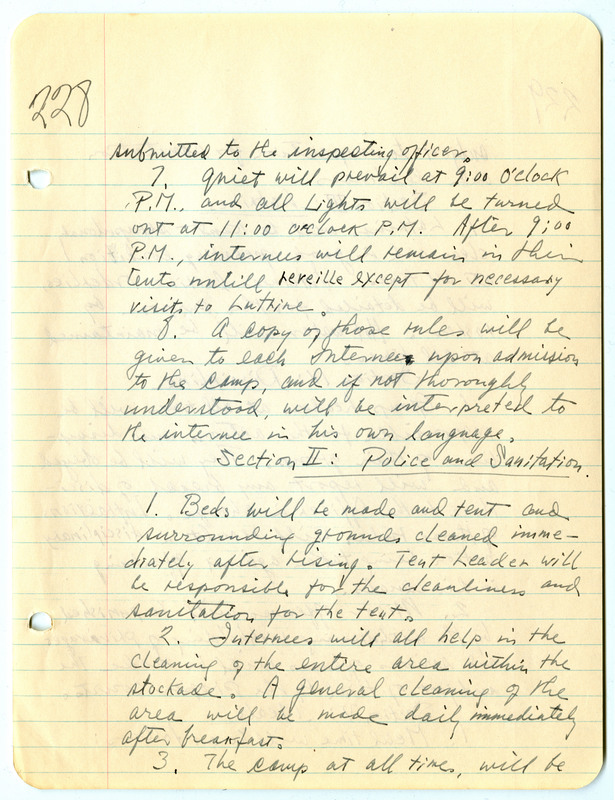 228
submitted to the inspecting officer.
7. Quiet will prevail at 9:00 O'clock
P.M., and all Lights will be turned
out at 11:00 o'clock P.M. After 9:00
P.M., internees will remain in their
tents untill reveille except for necessary
visits to Lutrine.
8. A copy of those rules will be
given to each Internee upon admission
to the camp, and if not thoroughly
understood, will be interpreted to
the internee in his own language.
Section II: Police and Sanitation.
1. Beds will be made and tent and
surrounding grounds cleaned imme-
diately after rising. Tent Leader will
be responsible for the cleanliness and
sanitation for the tent.
2. Internees will all help in the
cleaning of the entire area within the
stockade. A general cleaning of the
area will be made daily immediately
after breakfast.
3. The camp at all times, will be